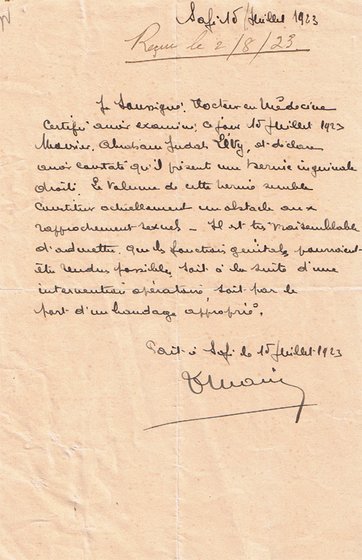 Safi 15 Juillet 1923
Reçu le 2/8/23.
Je Soussigné, Docteur en Médecine
Certifie avoir examiné, ce jour 15 Juillet 1923
Abraham Judah Lévy, et déclare
avoir constaté qu'il présente une hernie inguinale
droite. Le volume de cette hernie semble
constituer actuellement un obstacle aux
rapprochements sexuels - Il est très vraisemblable
d'admettre que les fonctions génitales pourraient
être rendues possibles, soit à la suite d'une
intervention opératoire, soit par le
port d'un bandage approprié.
Fait à Safi le 15 Juillet 1923